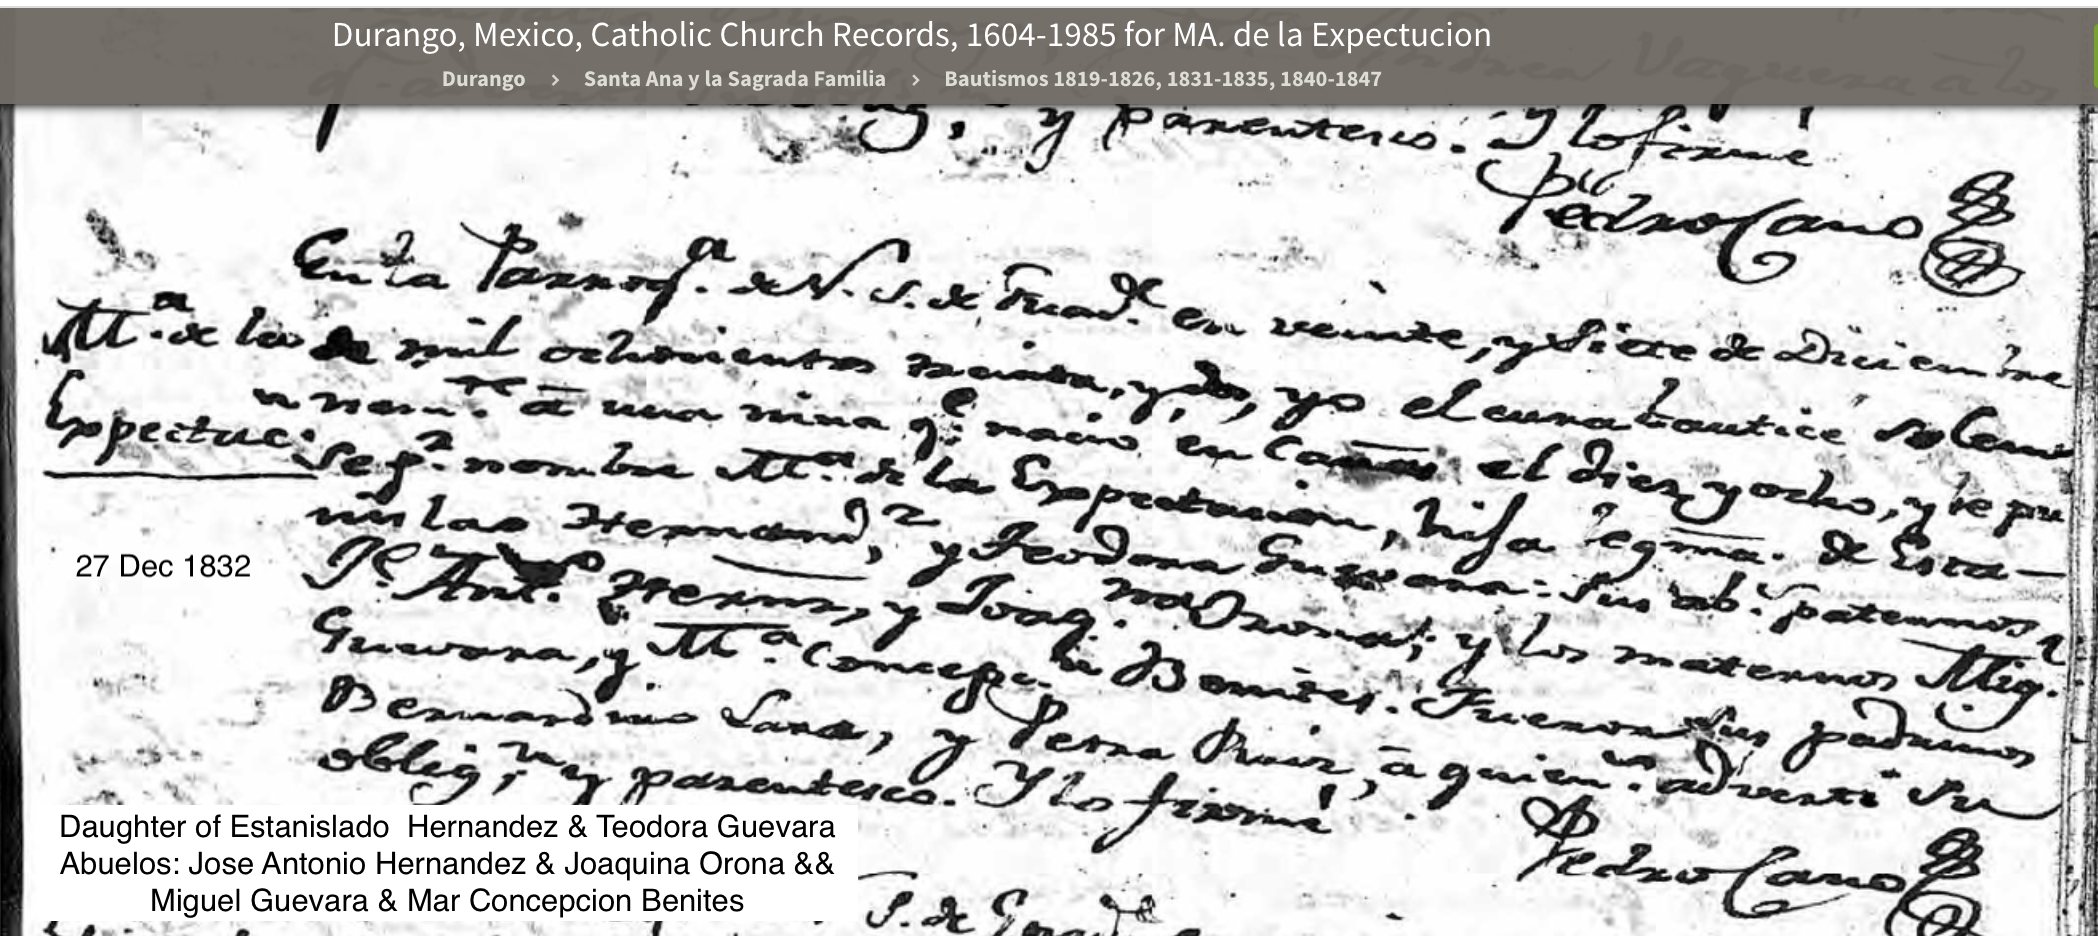 Durango, Mexico, Catholic Church Records, 1604-1985 for MA. de la Expectucion
Durango > Santa Ana y la Sagrada Familia > Bautismos 1819-1826, 1831-1835, 1840-1847
y parentesco. Y lo firme
Pedro Cano
En la Parroq.a de N. S. de Guad.e en veinte, y siete de Diciembre
M.a de la
Expectac.
de mil ochocientos treinta, y dos, yo el cura bauticé solem
nem.te a una niña q.e nacio en el diez y ocho, y le pu
se p.r nombre M.a de la Expectacion, hija legma. de Esta-
nislao Hernand.z, y Teodora Guevara: Sus ab.s paternos
J.e Ant.o Hernz, y Joaq.na Orona; y los maternos Mig.l
Guevara, y M.a Concepc.n Benites. Fueron sus padrinos
Bernardino Lara, y Petra Ruiz, a quien.s adverti su
oblig.n y parentesco. Y lo firmé
Pedro Cano
27 Dec 1832
Daughter of Estanislado Hernandez & Teodora Guevara
Abuelos: Jose Antonio Hernandez & Joaquina Orona &&
Miguel Guevara & Mar Concepcion Benites
S. de